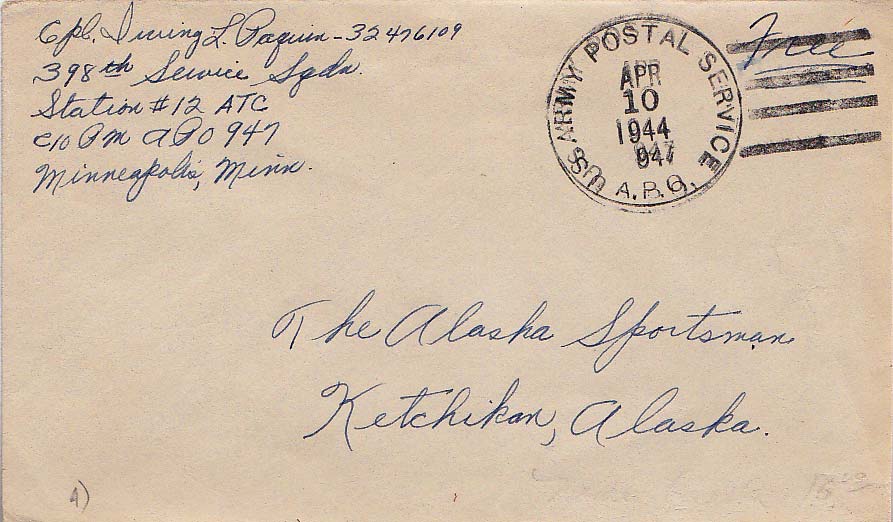 Cpl. Irving L. Paquin - 32476109
398th Service Sqdn.
Station #12 ATC
C/O PM APO 947
Minneapolis, Minn.
U.S. ARMY POSTAL SERVICE
APR
10
1944
947
A.P.O.
Free
The Alaska Sportsman
Ketchikan, Alaska.